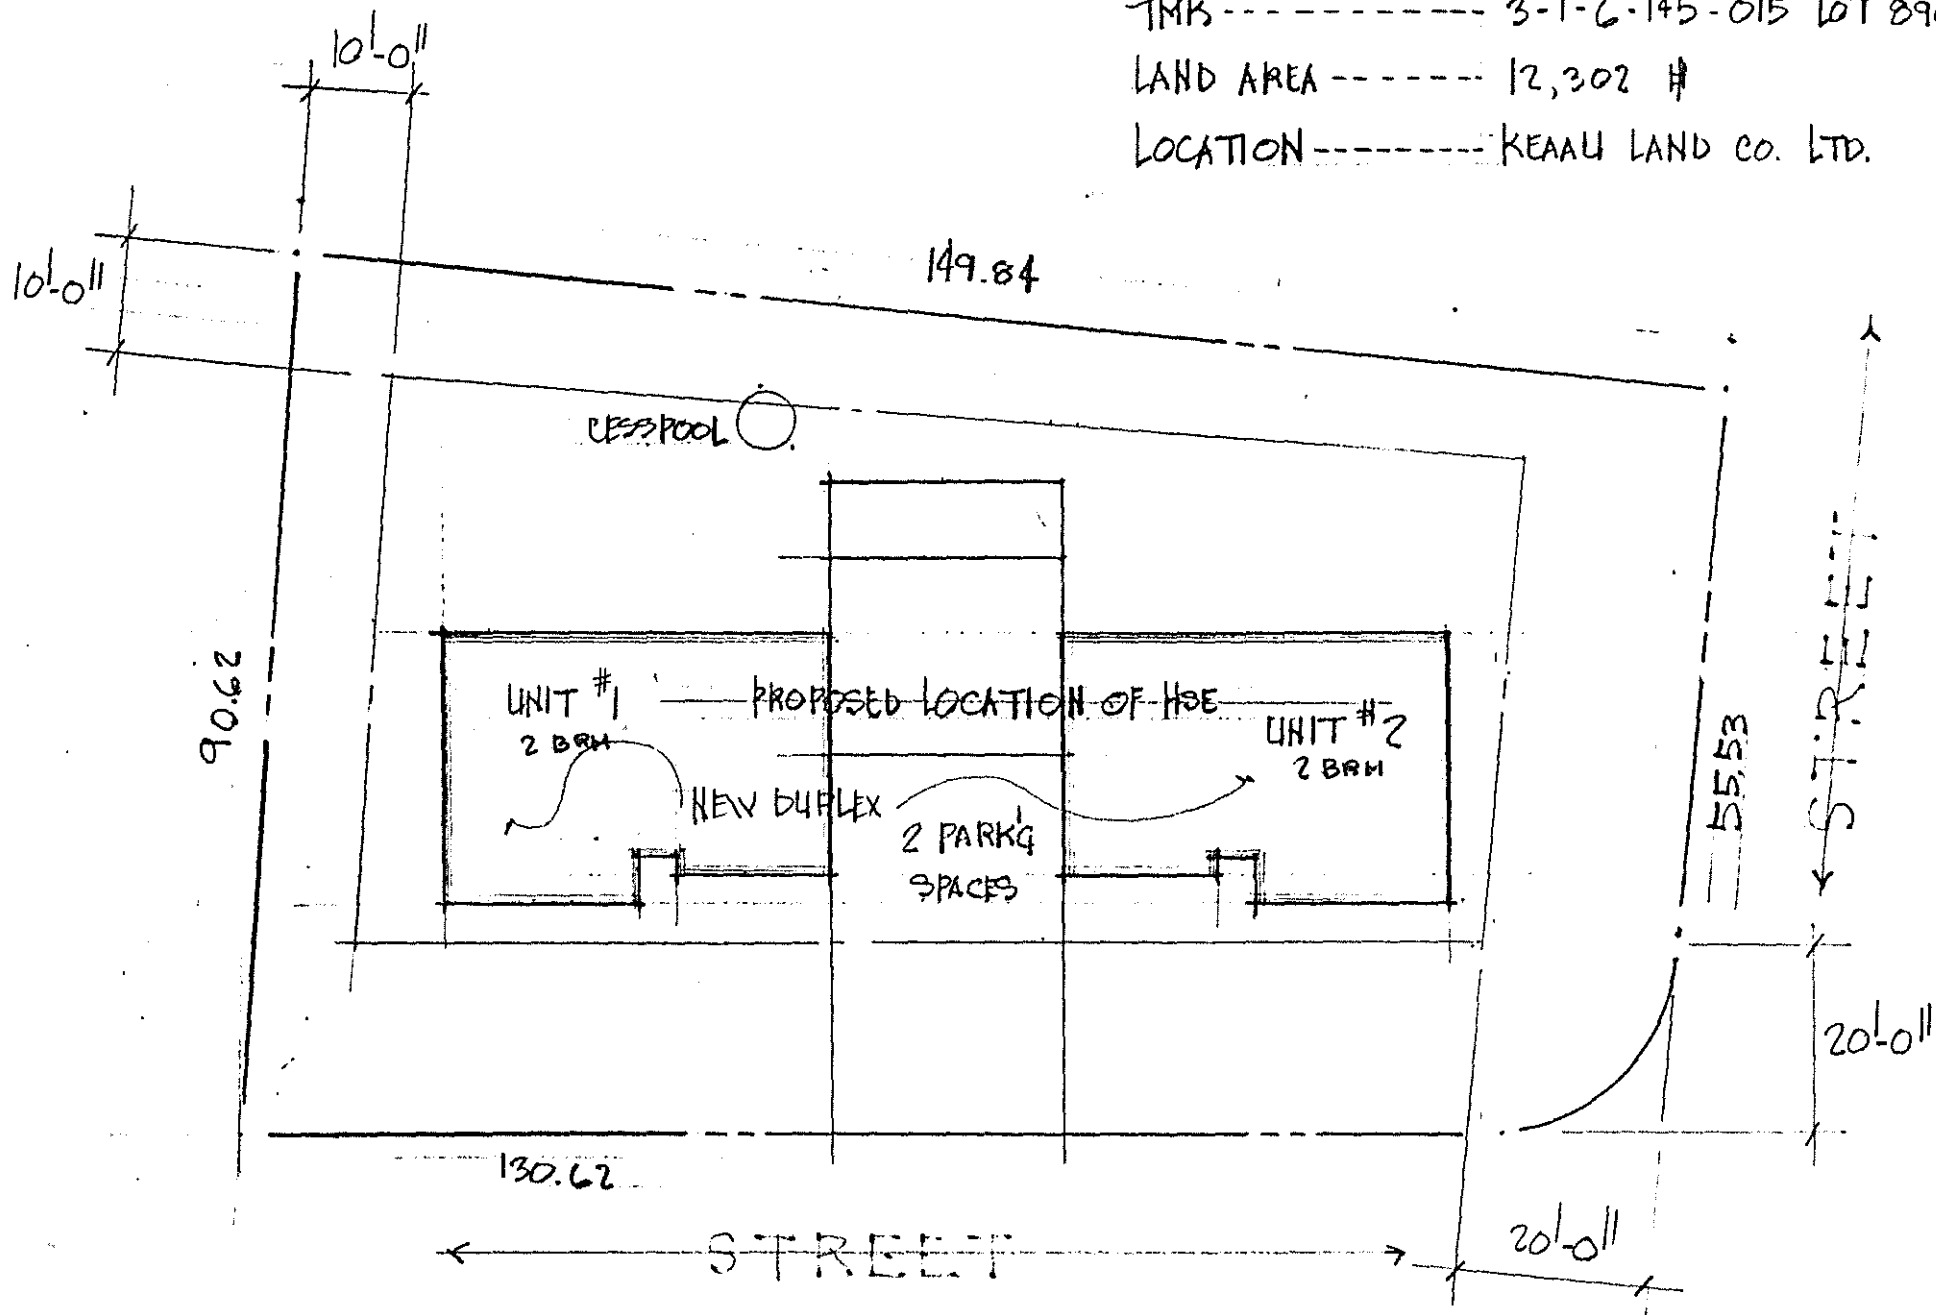 TMK ----------- 3-1-6-145-015 LOT
LAND AREA ------- 12,302 #
LOCATION --------- KEAAU LAND CO. LTD.
10'-0"
10'-0"
149.84
CESSPOOL
90.62
UNIT #1
2 BRM
PROPOSED LOCATION OF HSE
UNIT #2
2 BRM
NEW DUPLEX
2 PARK'G
SPACES
55.53
STREET
20'-0"
130.62
STREET
20'-0"